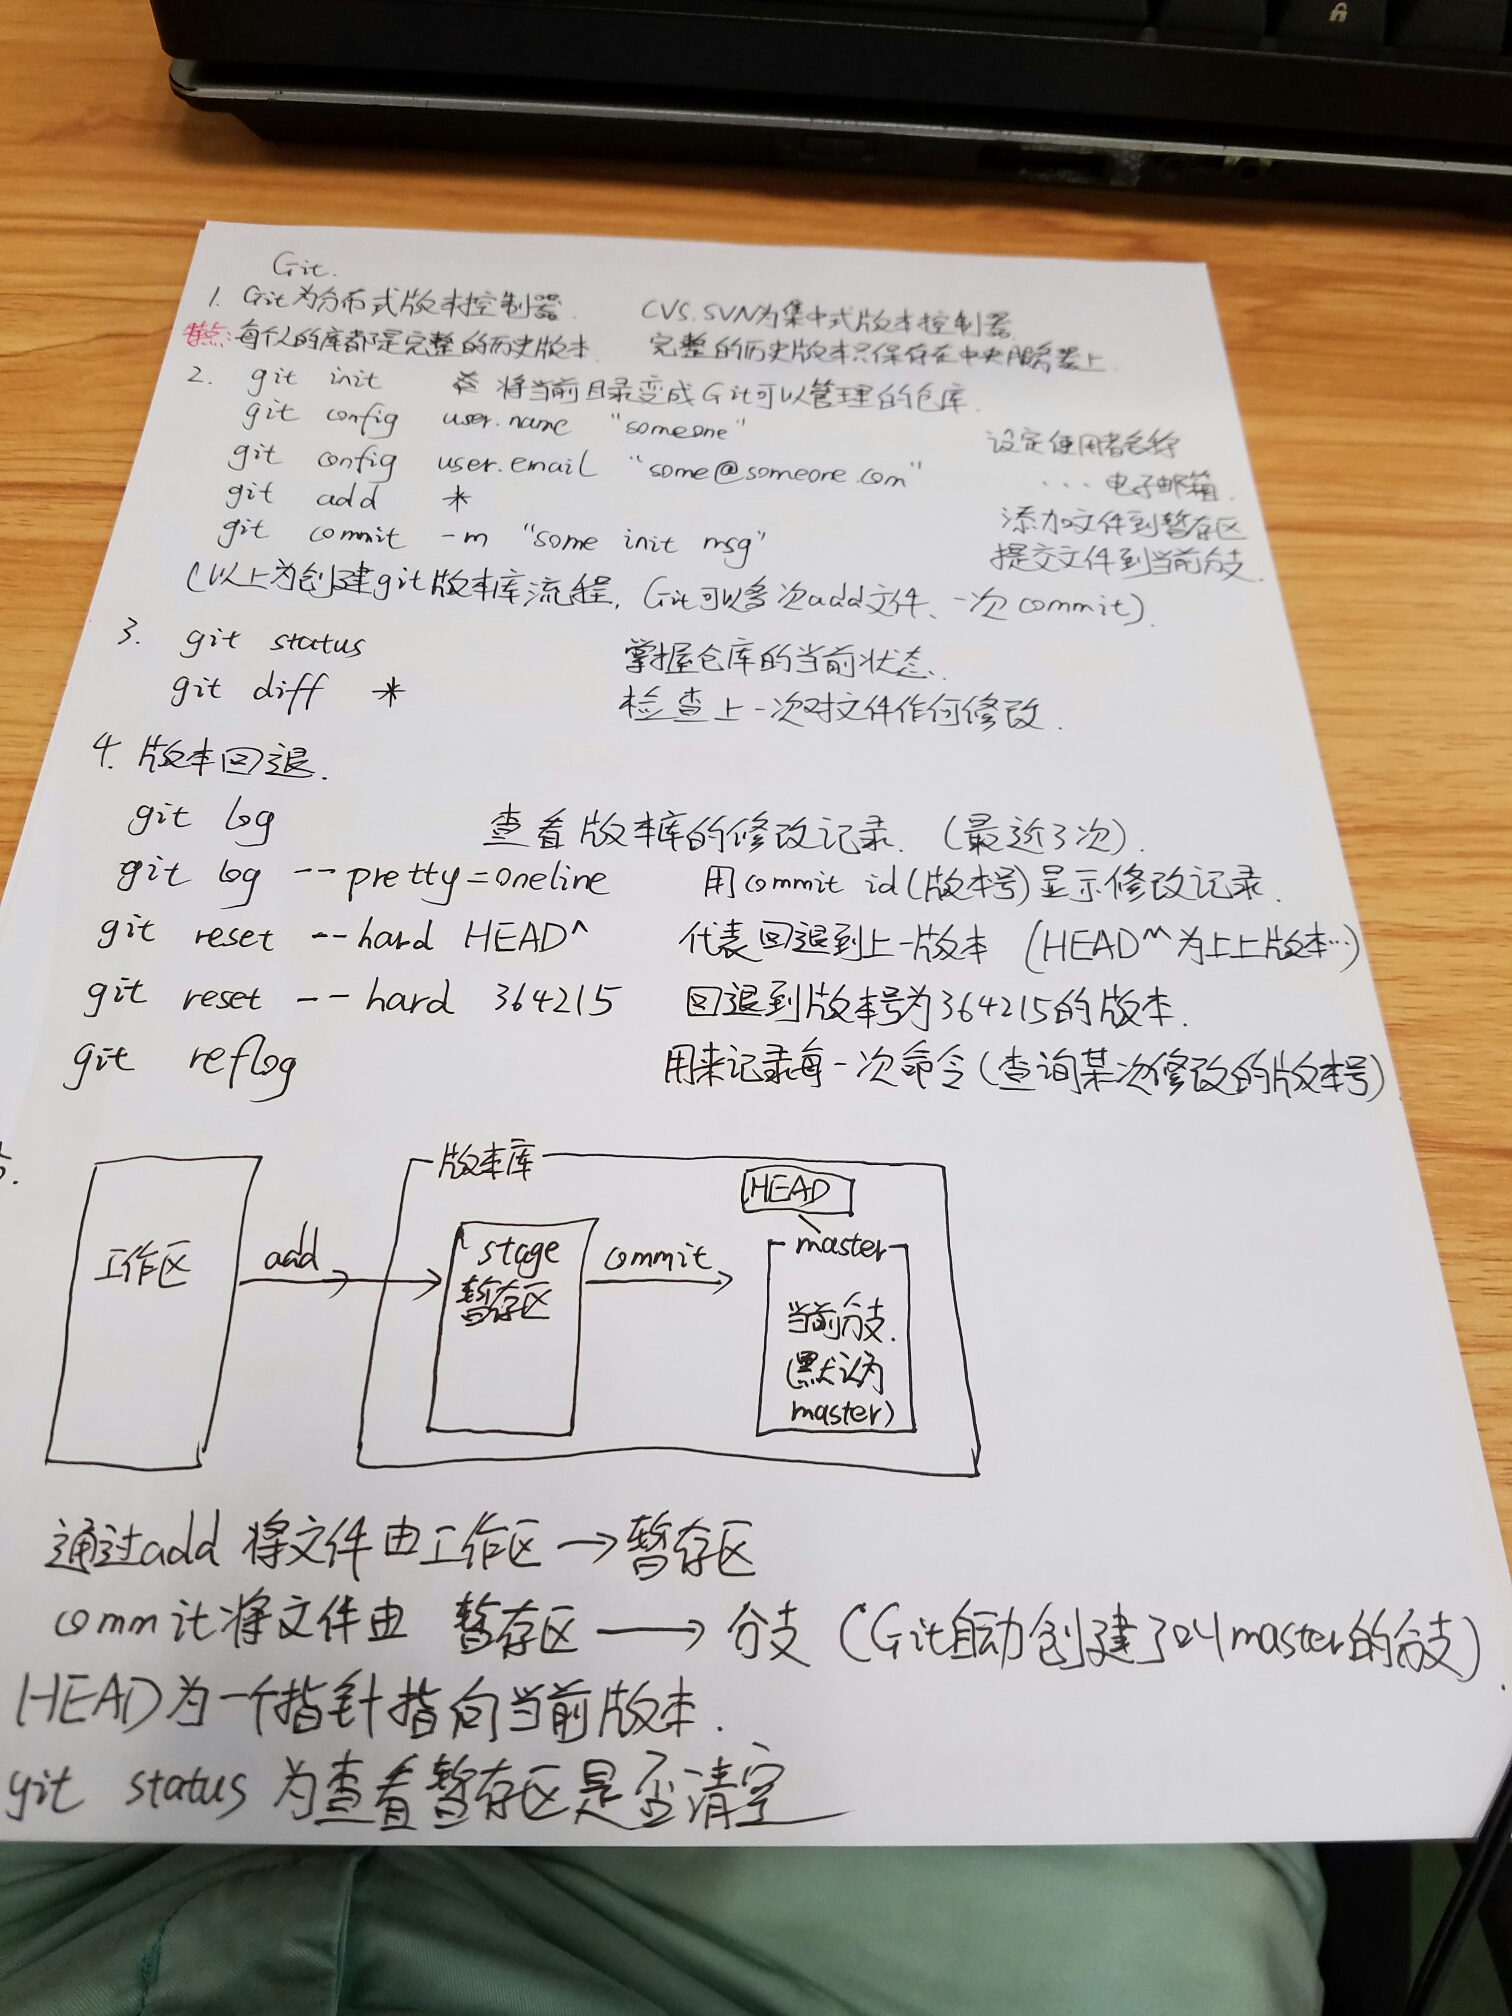 Git.
1. Git为分布式版本控制器. CVS.SVN为集中式版本控制器.
特点: 每个人的库都是完整的历史版本. 完整的历史版本只保存在中央服务器上.
2. git init 将当前目录变成Git可以管理的仓库.
git config user.name "someone" 设定使用者名称
git config user.email "some@someone.com" ...电子邮箱.
git add * 添加文件到暂存区
git commit -m "some init msg" 提交文件到当前分支.
(以上为创建git版本库流程, Git可以多次add文件、一次commit).
3. git status 掌握仓库的当前状态.
git diff * 检查上一次对文件作何修改.
4. 版本回退.
git log 查看版本库的修改记录. (最近3次).
git log --pretty=oneline 用commit id(版本号)显示修改记录.
git reset --hard HEAD^ 代表回退到上一版本 (HEAD^^为上上版本...)
git reset --hard 364215 回退到版本号为364215的版本.
git reflog 用来记录每一次命令(查询某次修改的版本号)
5.
版本库
HEAD
工作区 add stage commit master
暂存区
当前分支.
(默认为
master)
通过add 将文件由工作区→暂存区
commit将文件由 暂存区→分支 (Git自动创建了master的分支).
HEAD为一个指针指向当前版本.
git status 为查看暂存区是否清空